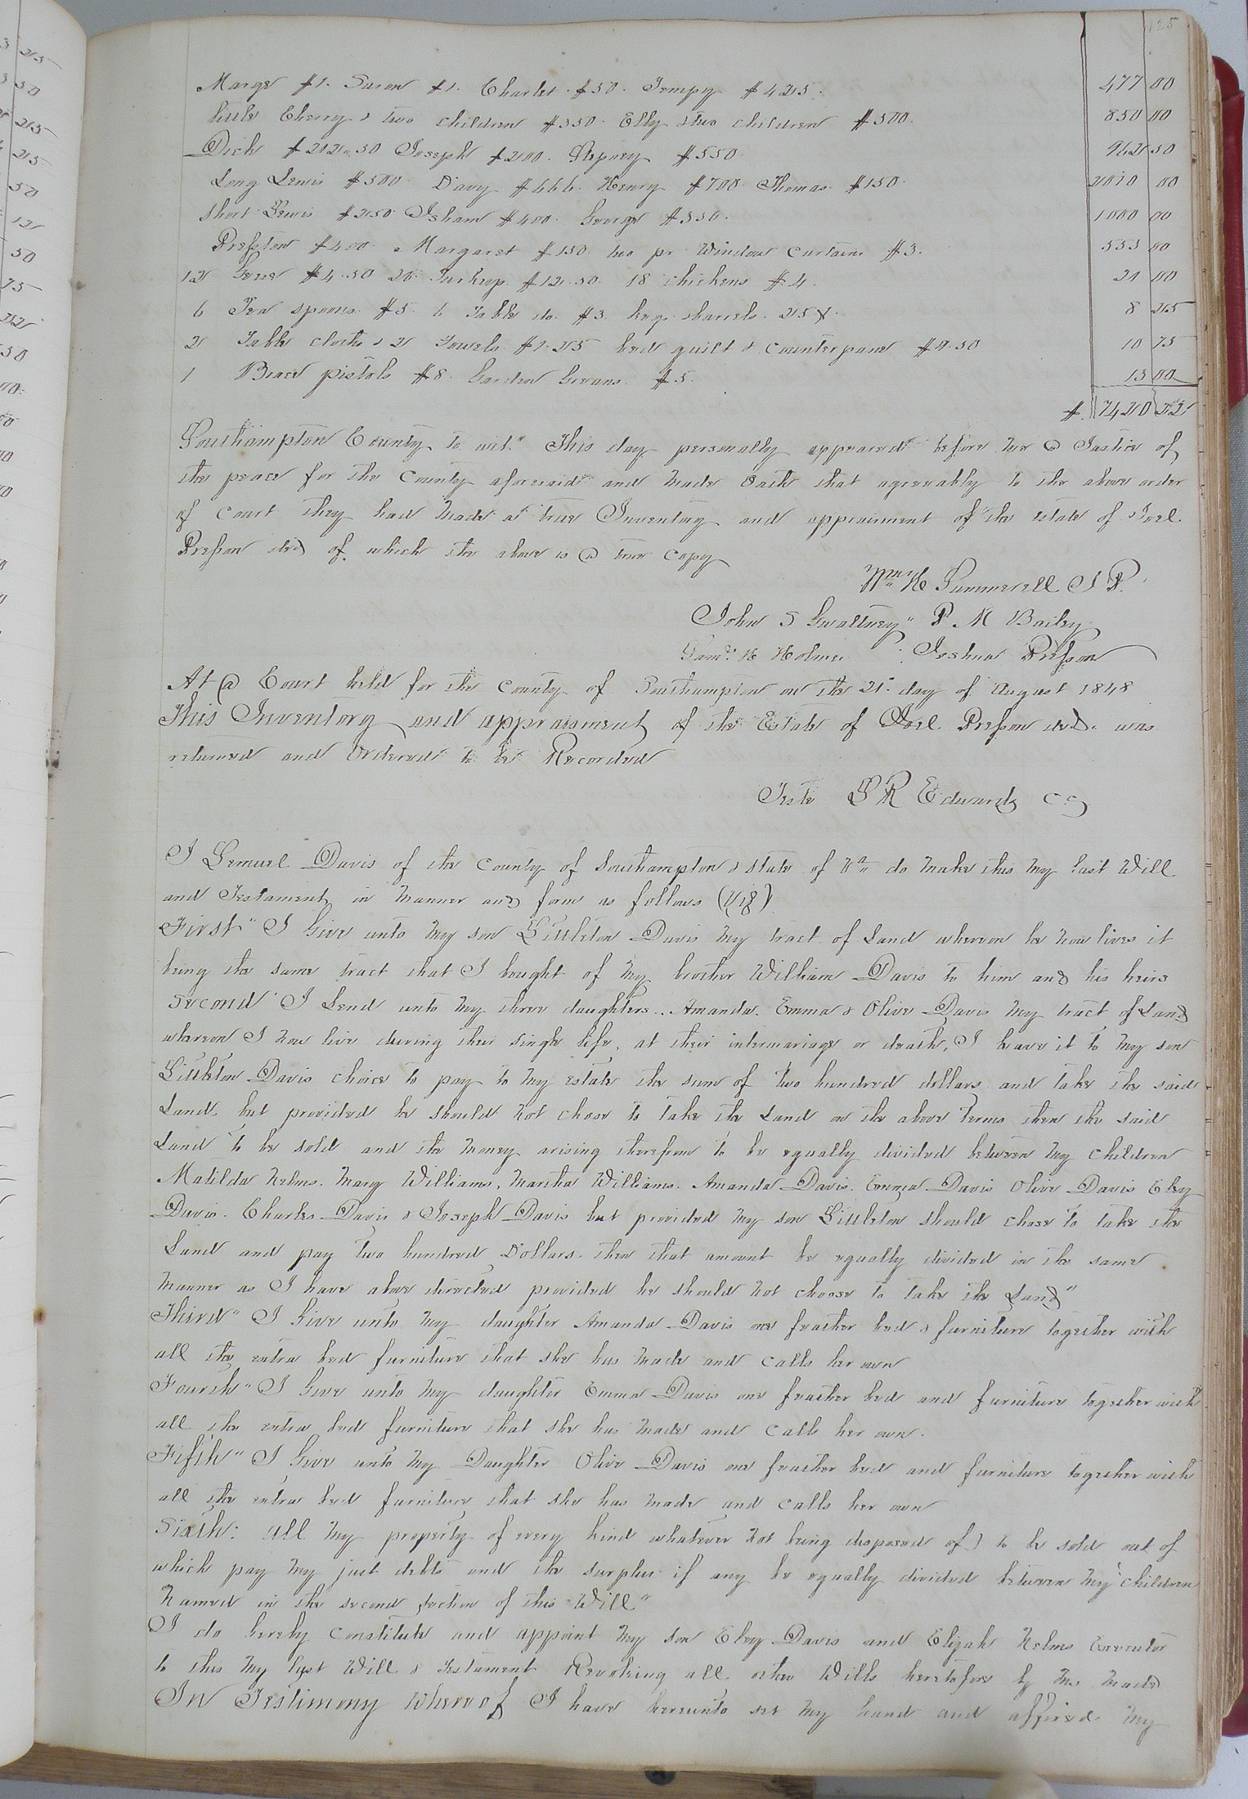 125
Marge $1. Susan $1. Charlot $50. Tempy $425. 477 00
little Cherry & two children $350. Elly & two children $500. 850 00
Dick $212.50 Joseph $200. Pepney $550. 962 50
Long Lewis $500. Davy $666. Henry $700. Thomas $150. 2010 00
Short Lewis $250 Isham $400. George $350. 1000 00
Presston $400. Margaret $150 two pr Window Curtains $3. 553 00
12 Geese $4.50 25 Turkeys $12.50. 18 chickens $4. 21 00
6 Tea spoons $5. 6 Table do. $3. keg & barrels 25¢. 8 25
2 Table cloths & 2 Towels $1.25 bed quilt & Counterpane $9.50 10 75
1 Brace pistols $8. Garden Greans $5. 13 00
$ 17420 52
Southampton County to wit. This day personally appeared before me a Justice of
the peace for the County aforesaid and made Oath that agreeably to the above order
of Court they had made a true Inventory and appraisment of the estate of Joel
Presson decd of which the above is a true copy
Wm H Summerell J P.
John S Gwaltney" P. M Bailey
Saml H Holmes : Joshua Presson
At a Court held for the County of Southampton on the 21st day of August 1848
This Inventory and appraisment of the Estate of Joel Presson decd. was
returned and Ordered to be Recorded
Teste L R Edwards cc
I Lemuel Davis of the County of Southampton & State of Va do make this my last Will
and Testament in manner and form as follows (Viz)
First" I Give unto my son Littleton Davis my tract of Land whereon he now lives it
being the same tract that I bought of my brother William Davis to him and his heirs
Second" I Lend unto my three daughters. Amanda. Emma & Olive Davis my tract of Land
whereon I now live during their single life, at their intermariage or death, I leave it to my son
Littleton Davis choice to pay to my estate the sum of two hundred dollars and take the said
Land. but provided he should not chose to take the Land on the above terms then the said
Land to be sold and the money arising therefrom to be equally divided between my children
Matilda Nelms. Mary Williams, Martha Williams. Amanda Davis. Emma Davis Olive Davis Elvy
Davis. Charles Davis & Joseph Davis but provided my son Littleton should chose to take the
Land and pay two hundred Dollars. then that amount be equally divided in the same
manner as I have above directed provided he should not choose to take the Land"
Third" I Give unto my daughter Amanda Davis one feather bed & furniture together with
all the extra bed furniture that she has made and calls her own
Fourth" I Give unto my daughter Emma Davis one feather bed and furniture together with
all the extra bed furniture that she has made and calls her own.
Fifth" I Give unto my Daughter Olive Davis one feather bed and furniture together with
all the extra bed furniture that she has made and calls her own
Sixth: All my property of every kind whatever not being disposed of) to be sold out of
which pay my just debts and the surplus if any be equally divided between my children
Named in the second section of this Will"
I do hereby Constitute and appoint my son Elvy Davis and Elijah Nelms Executor
to this my last Will & Testament Revoking all other Wills heretofore by me made
In Testimony Whereof I have hereunto set my hand and affixed my